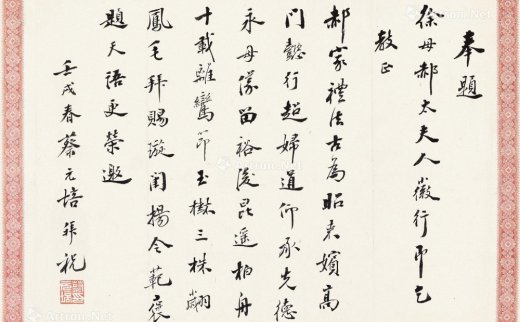 奉題
徐母郝太夫人徽行即乞
教正
郝家禮法古為昭來嬪高
門懿行超婦道仰承先德
永母儀留裕後昆遙柏舟
十載離鸞節玉樹三株翽
鳳毛拜賜璇閨揚令範褒
題天語更榮邀
壬戌春蔡元培拜祝